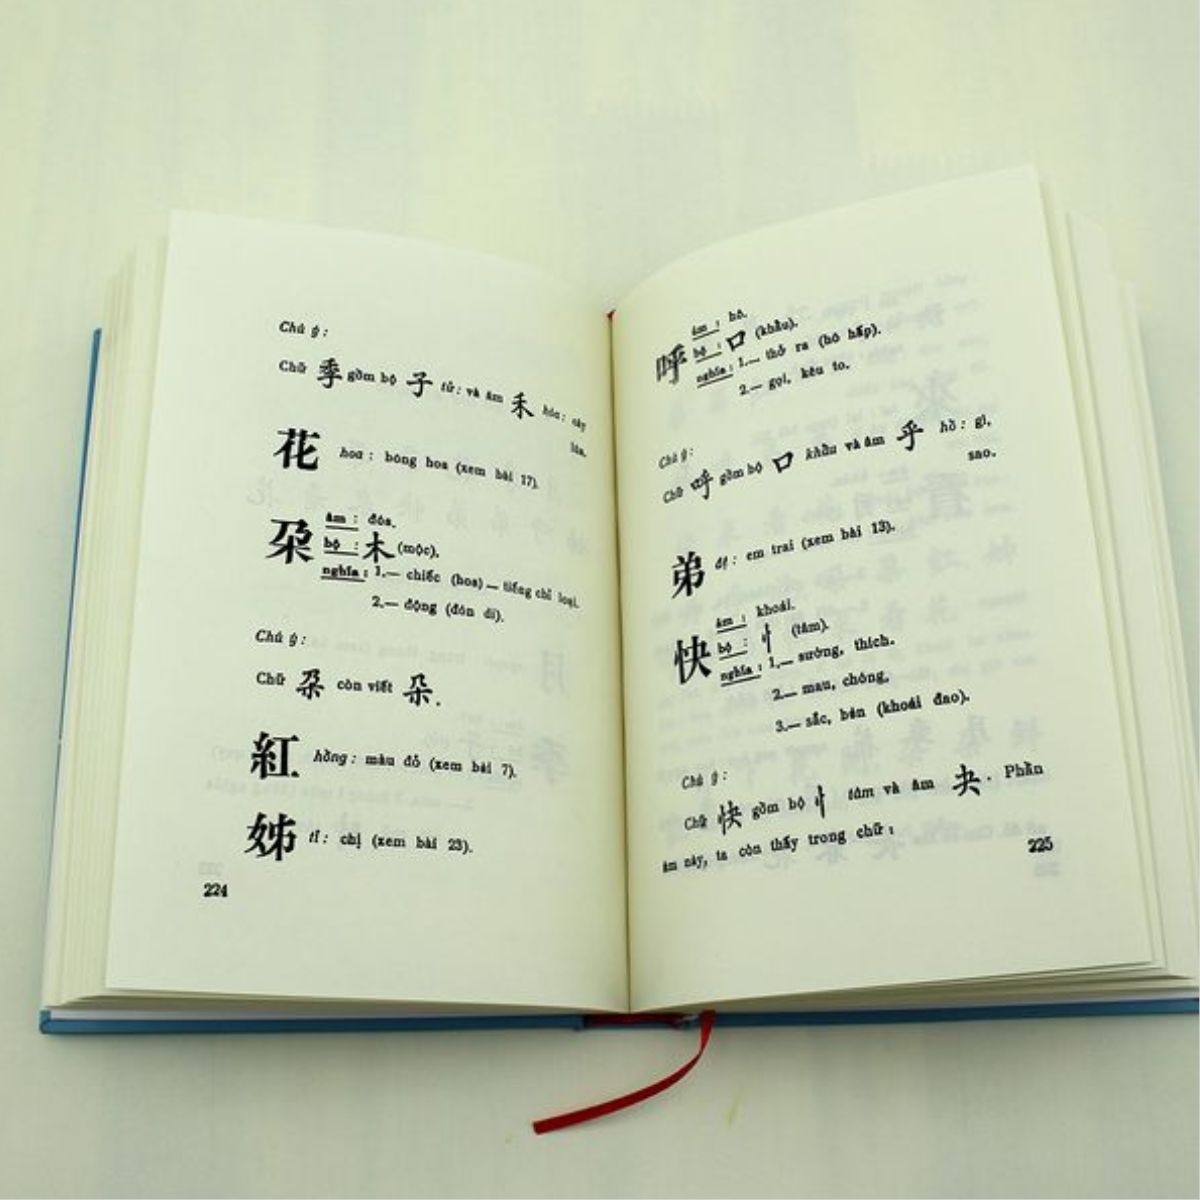 Chú ý :
Chữ 季 gồm bộ 子 tử : và âm 禾 hòa : cây
lúa.
花 hoa : bông hoa (xem bài 17).
朶 âm : đóa.
bộ : 木 (mộc).
nghĩa : 1.— chiếc (hoa) — tiếng chỉ loại.
2.— động (đón đi).
Chú ý :
Chữ 朶 còn viết 朵.
紅 hồng : màu đỏ (xem bài 7).
姊 tỉ : chị (xem bài 23).
224
呼 âm : hô.
bộ : 口 (khẩu).
nghĩa : 1.— thở ra (hô hấp).
2.— gọi, kêu to.
Chú ý :
Chữ 呼 gồm bộ 口 khẩu và âm 乎 hồ : gì,
sao.
弟 đệ : em trai (xem bài 13).
快 âm : khoái.
bộ : 忄 (tâm).
nghĩa : 1.— sướng, thích.
2.— mau, chóng.
3.— sắc, bén (khoái đao).
Chú ý :
Chữ 快 gồm bộ 忄 tâm và âm 夬. Phần
âm này, ta còn thấy trong chữ :
225